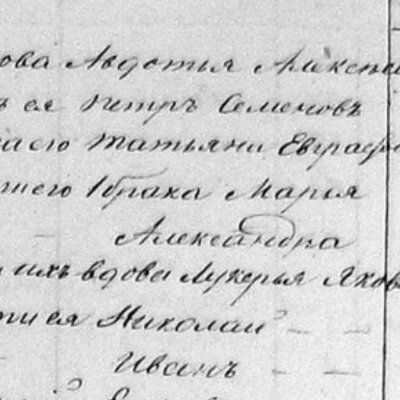 ова Авдотья Алексѣе
ъ ея Петръ Семеновъ
Татьяна Евграфо
шего 1 брака Марья
Александра
ихъ вдова Лукерья Яков
ти ея Николай
Иванъ